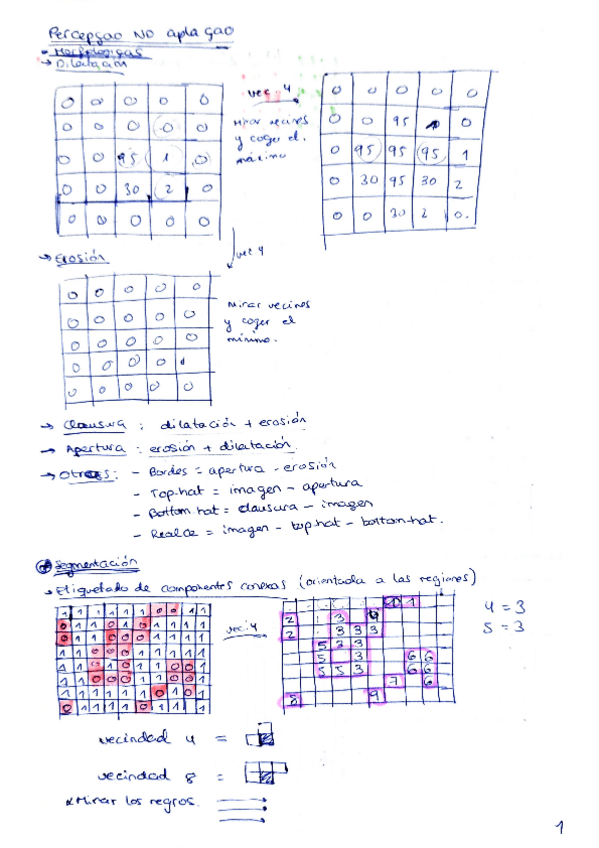 Percepçao NO apla çao
- Morfologicas
→ Dilatación
0 0 0 0 0
0 0 0 0 0
0 0 95 1 0
0 0 30 2 0
0 0 0 0 0
vec 4
Mirar vecinos
y coger el
máximo
0 0 0 0 0
0 0 95 0
0 95 95 95 1
0 30 95 30 2
0 0 30 2 0.
vec 4
→ Erosión
0 0 0 0 0
0 0 0 0 0
0 0 0 0 0
0 0 0 0
0 0 0 0 0
Mirar vecinos
y coger el
mínimo.
→ Clausura : dilatación + erosión
→ Apertura : erosión + dilatación.
→ Otros: - Bordes = apertura - erosión
- Top-hat = imagen - apertura
- Bottom hat = clausura - imagen
- Realce = imagen - top-hat - bottom-hat.
Segmentación
→ Etiquetado de componentes conexas (orientada a las regiones)
vec. 4
4 = 3
5 = 3
vecindad 4 =
vecindad 8 =
Mirar los negros.
1